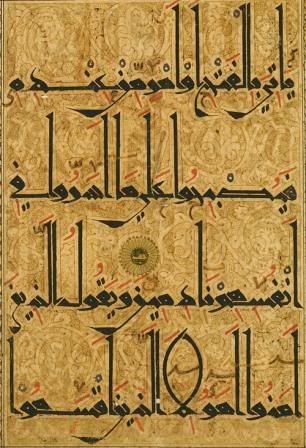 ياتي بالفتح او امر من عنده
فيصبحوا على ما اسروا في
انفسهم نادمين ويقول الذين
امنوا اهولا الذين اقسموا